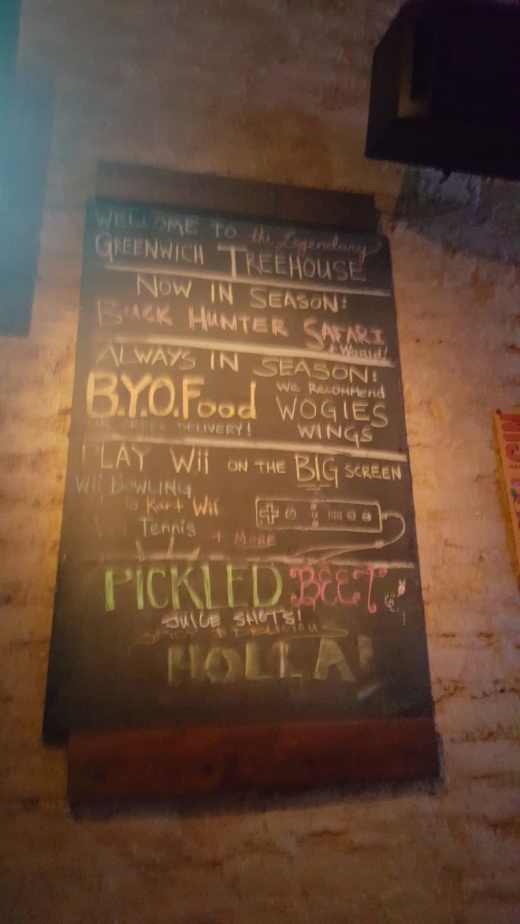 WELCOME TO the Legendary
GREENWICH TREEHOUSE
NOW IN SEASON:
BUCK HUNTER SAFARI
+ World!
ALWAYS IN SEASON:
B.Y.O.Food
OR ORDER DELIVERY!
WE RECOMMEND
WOGIES
WINGS
PLAY Wii ON THE BIG SCREEN
Wii BOWLING
Kart Wii
Tennis + MORE
PICKLED BEET
JUICE SHOTS!
SPICY & DELICIOUS
HOLLA!